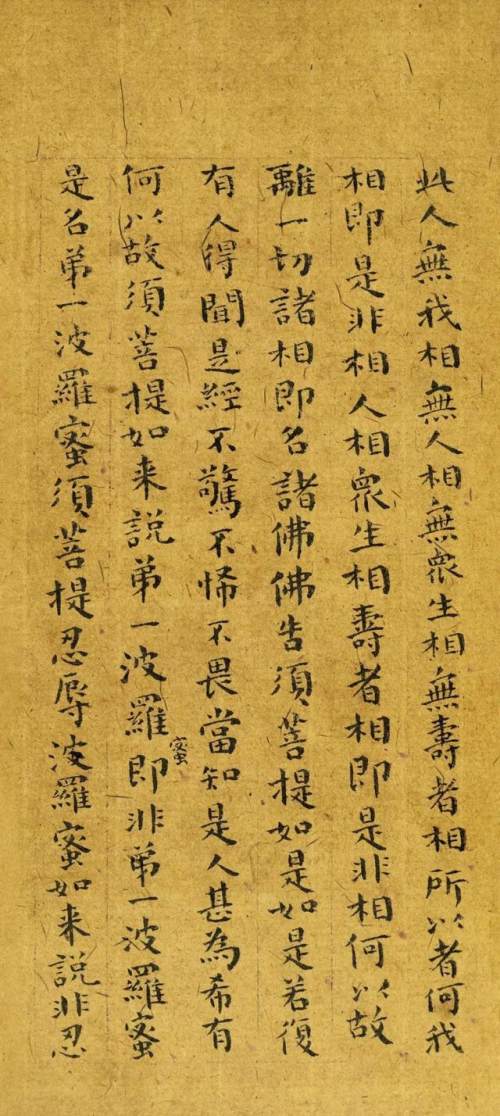 此人無我相無人相無眾生相無壽者相所以者何我
相即是非相人相眾生相壽者相即是非相何以故
離一切諸相即名諸佛佛告須菩提如是如是若復
有人得聞是經不驚不怖不畏當知是人甚為希有
何以故須菩提如来說苐一波羅蜜即非苐一波羅蜜
是名苐一波羅蜜須菩提忍辱波羅蜜如来說非忍